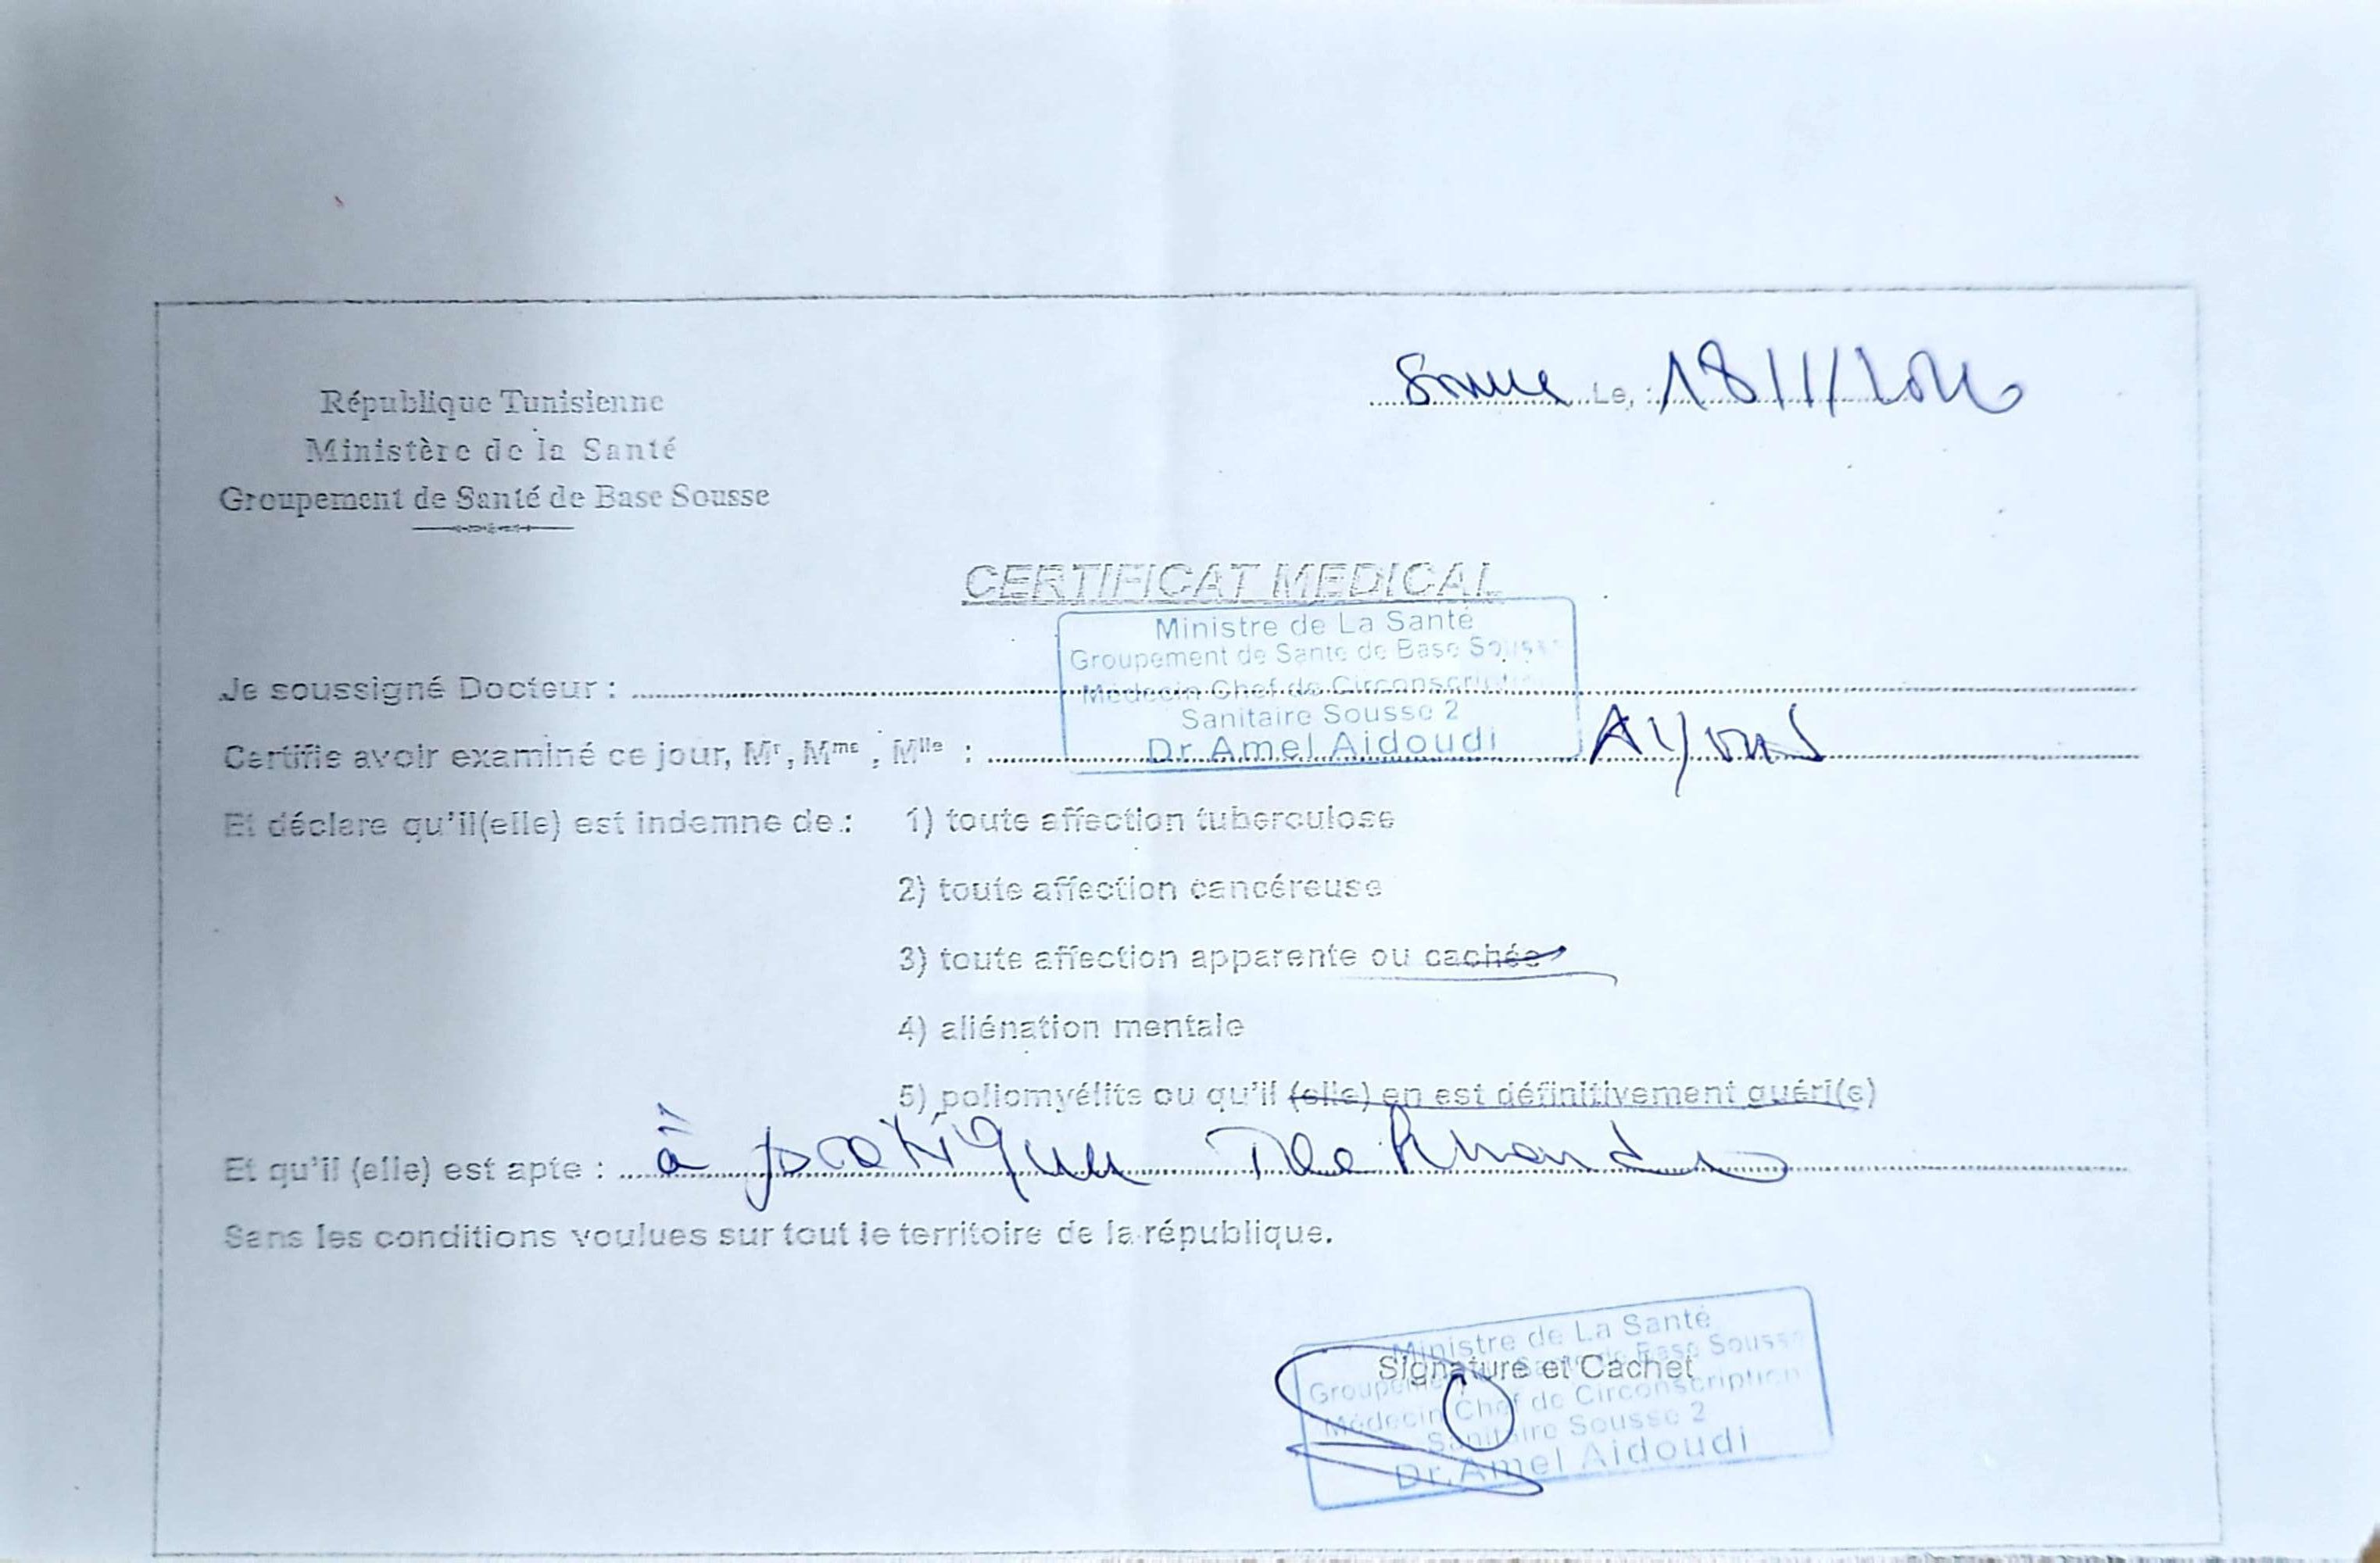 République Tunisienne
Ministère de la Santé
Groupement de Santé de Base Sousse
Sousse Le, : 18/1/2026
CERTIFICAT MEDICAL
Ministre de La Santé
Groupement de Sante de Base Sousse
Médecin Chef de Circonscription
Sanitaire Sousse 2
Dr. Amel Aidoudi
Je soussigné Docteur :
Certifie avoir examiné ce jour, Mr, Mme, Mlle :
Et déclare qu'il(elle) est indemne de : 1) toute affection tuberculose
2) toute affection cancéreuse
3) toute affection apparente ou cachée
4) aliénation mentale
5) poliomyélite ou qu'il (elle) en est définitivement guéri(e)
Et qu'il (elle) est apte : à pratiquer
Sans les conditions voulues sur tout le territoire de la république.
Signature et Cachet
Ministre de La Santé
Groupement de Sante de Base Sousse
Médecin Chef de Circonscription
Sanitaire Sousse 2
Dr. Amel Aidoudi